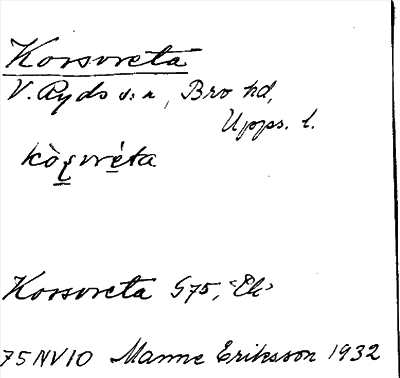 Korsvreta
V. Ryds s:n, Bro hd,
Upps. l.
Korsvreta G75, "Ek"
75NV10 Manne Eriksson 1932